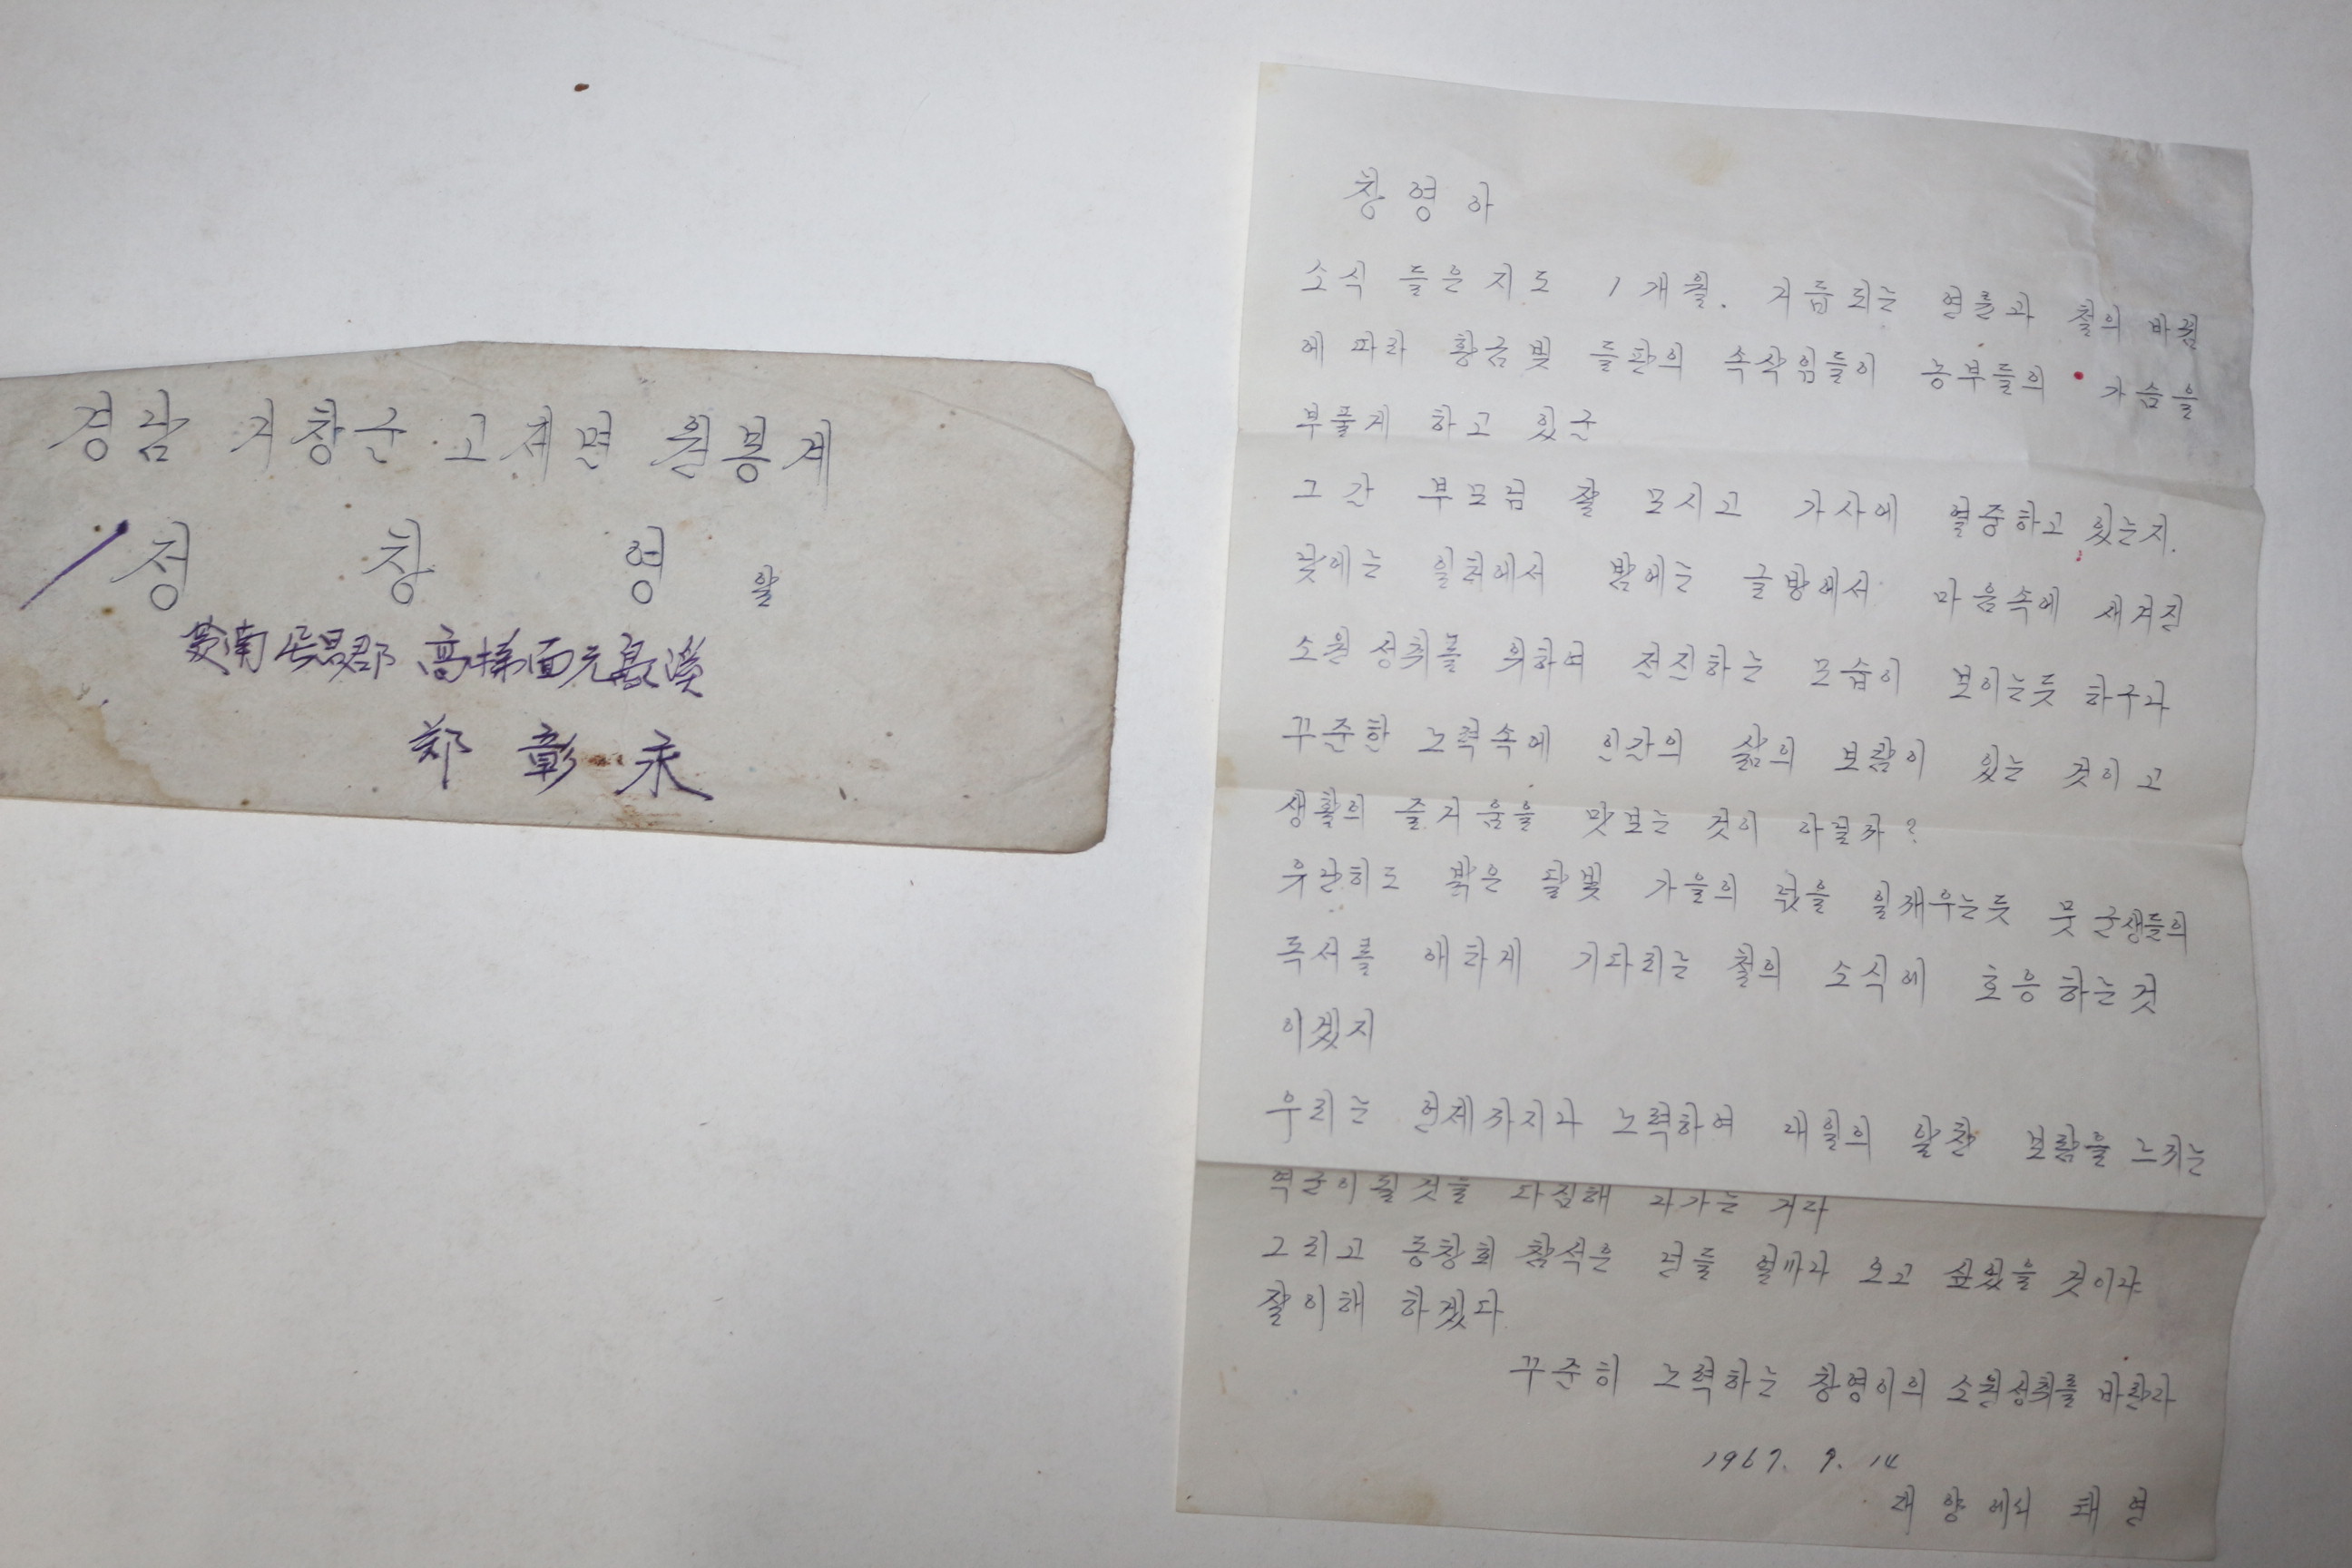 경남 거창군 고제면 원봉계
정 창 영 앞
慶南 居昌郡 高梯面 元鳳溪
鄭 彰 永
창영아
소식 들은지도 1개월. 거듭되는 연륜과 철의 바뀜
에 따라 황금빛 들판의 속삭임들이 농부들의 가슴을
부풀게 하고 있군
그간 부모님 잘 모시고 가사에 열중하고 있는지.
낮에는 일터에서 밤에는 글방에서 마음속에 새겨진
소원성취를 위하여 전진하는 모습이 보이는듯 하구나
꾸준한 노력속에 인간의 삶의 보람이 있는 것이고
생활의 즐거움을 맛보는 것이 아닐까?
유난히도 밝은 달빛 가을의 넋을 일깨우는듯 뭇 군생들의
독서를 애타게 기다리는 철의 소식에 호응하는것
이겠지
우리는 언제까지나 노력하여 내일의 알찬 보람을 느끼는
역군이될것을 다짐해 나가는 거다
그리고 동창회 참석은 넌들 얼마나 오고 싶었을 것이냐
잘이해 하겠다
꾸준히 노력하는 창영이의 소원성취를 바란다
1967. 9. 14
에서